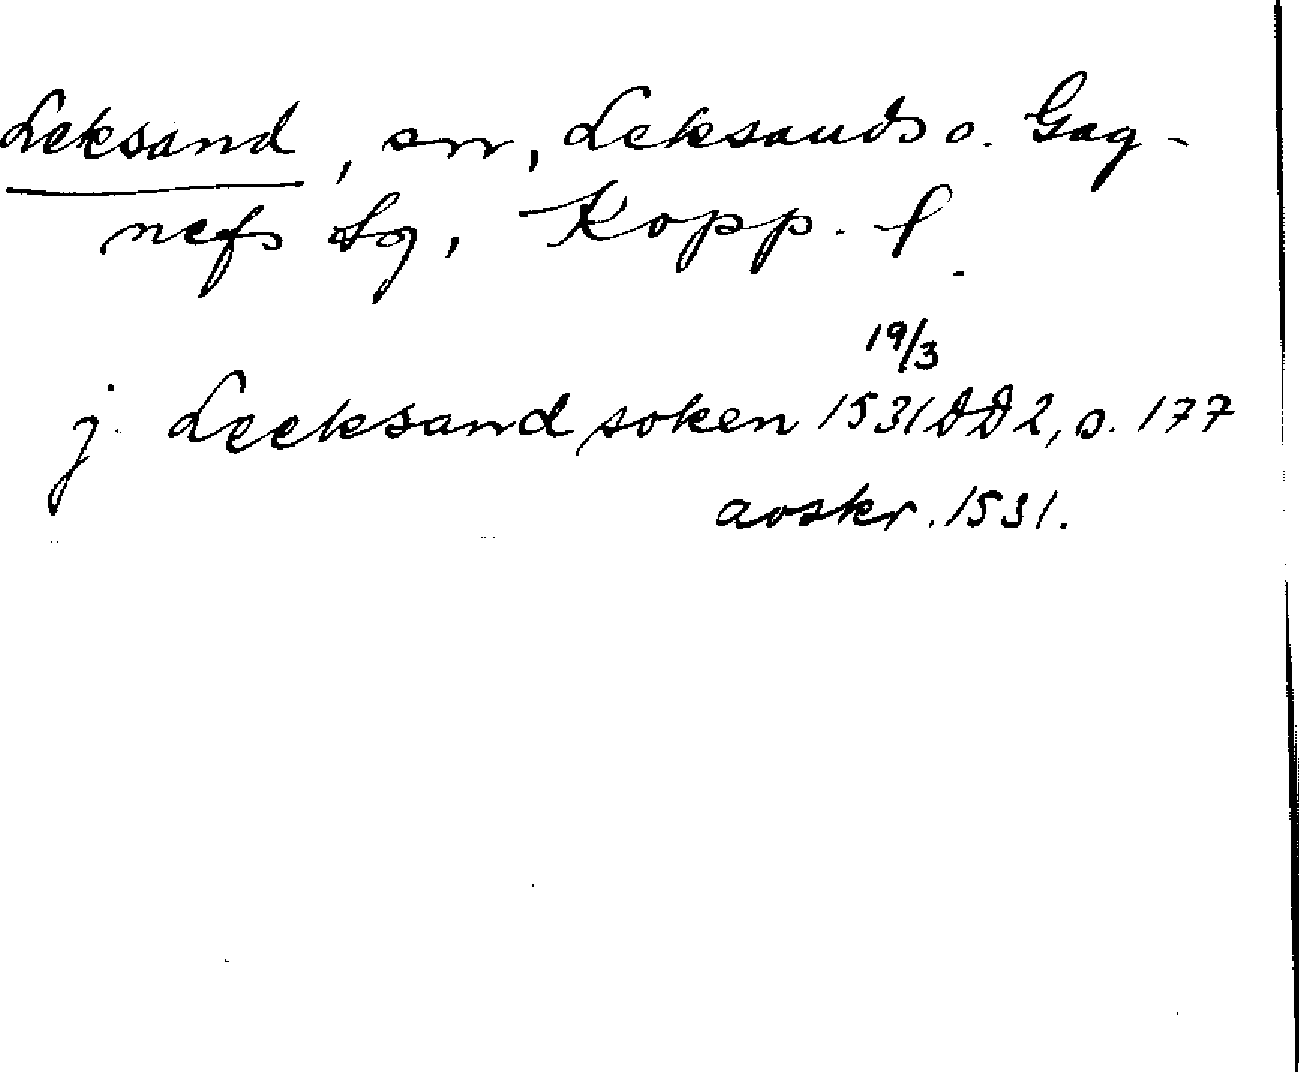 Leksand, sn, Leksands o. Gag-
nefs tg, Kopp. l.
19/3
j Leeksand soken 1531 DD 2, s. 177
avskr. 1531.